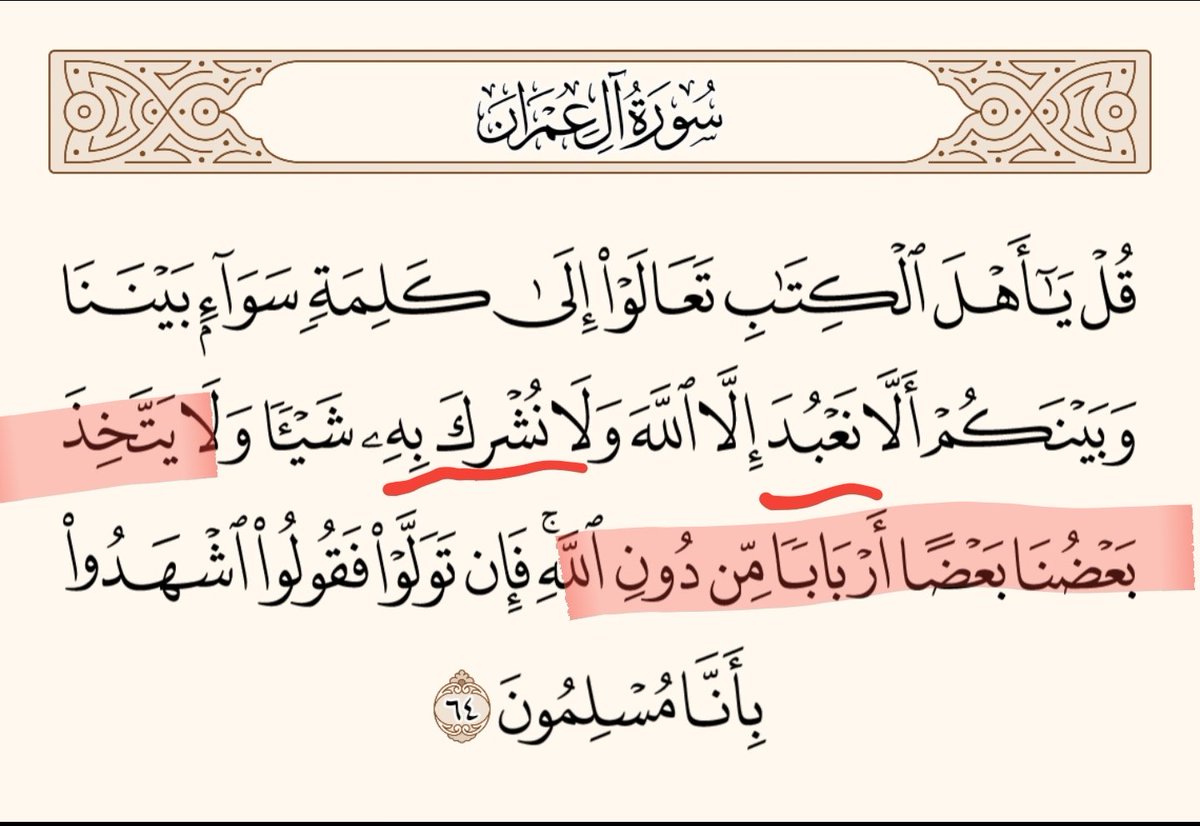 سُورَةُ آلِ عِمْرَانَ
قُلْ يَـٰٓأَهْلَ ٱلْكِتَـٰبِ تَعَالَوْا۟ إِلَىٰ كَلِمَةٍۢ سَوَآءٍۭ بَيْنَنَا
وَبَيْنَكُمْ أَلَّا نَعْبُدَ إِلَّا ٱللَّهَ وَلَا نُشْرِكَ بِهِۦ شَيْـًٔا وَلَا يَتَّخِذَ
بَعْضُنَا بَعْضًا أَرْبَابًا مِّن دُونِ ٱللَّهِ ۚ فَإِن تَوَلَّوْا۟ فَقُولُوا۟ ٱشْهَدُوا۟
بِأَنَّا مُسْلِمُونَ ٦٤